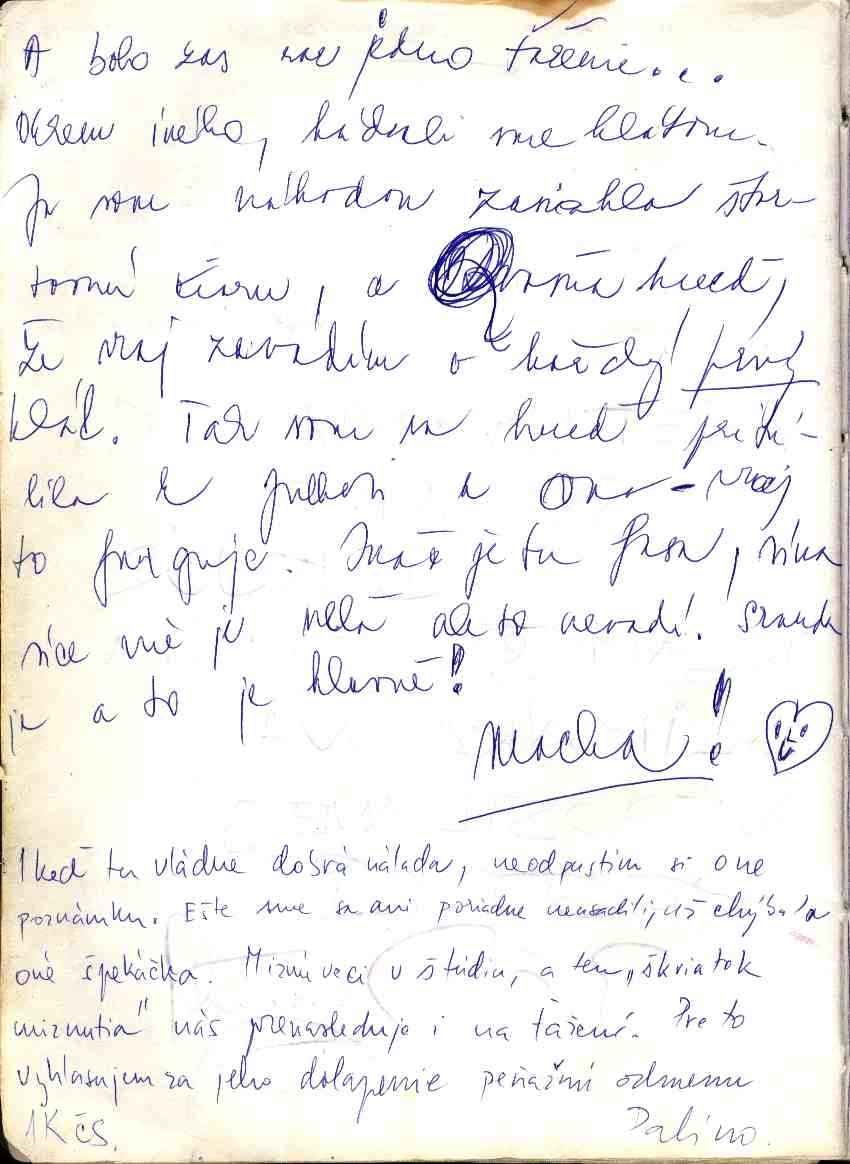 A bolo zas raz jedno ťaženie...
Okrem iného, hádzali sme klátom.
Ja som náhodou zasiahla štar-
tovnú čiaru, a hneď,
že vraj zavádzam o každý prvý
klát. Tak som sa hneď pritú-
lila k a ona - vraj
to funguje. Inak je tu fasa, zima
síce nie je malá ale to nevadí. Sranda
je a to je hlavné!
Macka!
I keď tu vládne dobrá nálada, neodpustím si one
poznámku. Ešte sme sa ani poriadne neusadili, už chýbala
oná špekáčka. Miznú veci v štúdiu, a ten „škriatok
miznutia" nás prenasleduje i na ťažení. Preto
vyhlasujem za jeho dolapenie peňažnú odmenu
1 Kčs. Palino.